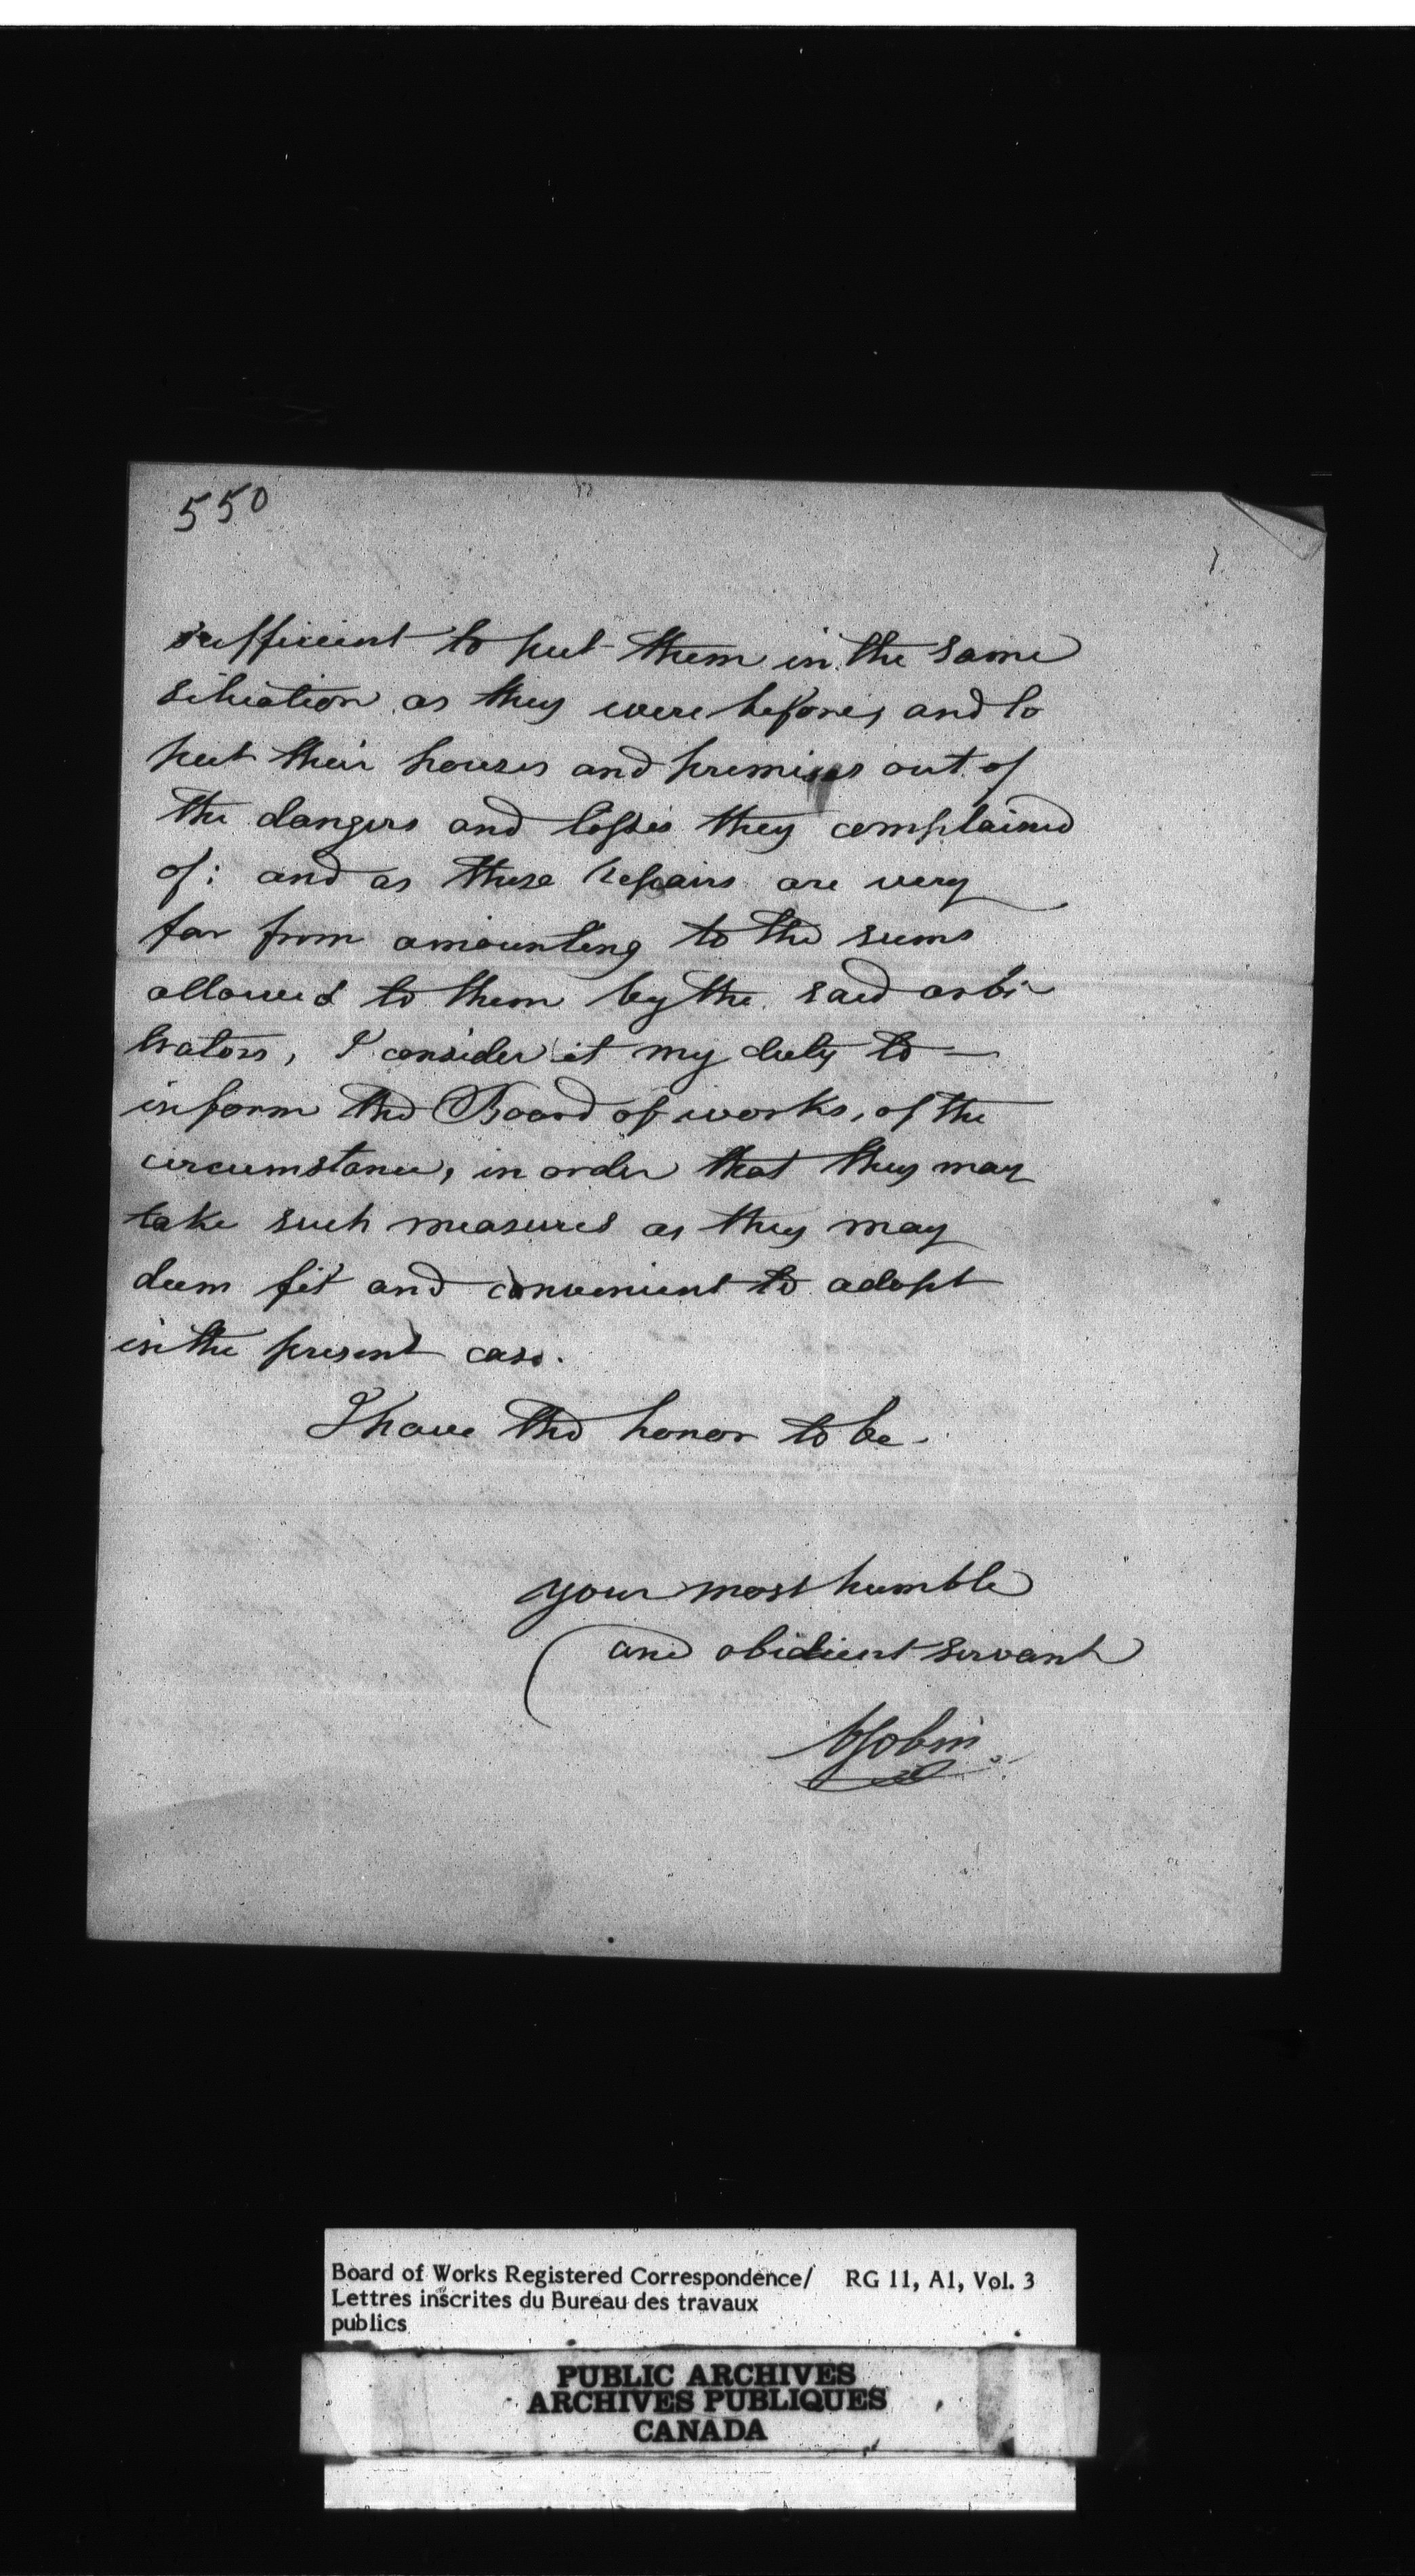 550
sufficient to put them in the same
situation as they were before, and to
put their houses and premises out of
the dangers and losses they complained
of; and as these repairs are very
far from amounting to the sums
allowed to them by the said arbi
trators, I consider it my duty to —
inform the Board of works, of the
circumstance, in order that they may
take such measures as they may
deem fit and convenient to adopt
in the present case.
I have the honor to be.
your most humble
and obidient servant
Board of Works Registered Correspondence/ RG 11, A1, Vol. 3
Lettres inscrites du Bureau des travaux
publics
PUBLIC ARCHIVES
ARCHIVES PUBLIQUES
CANADA